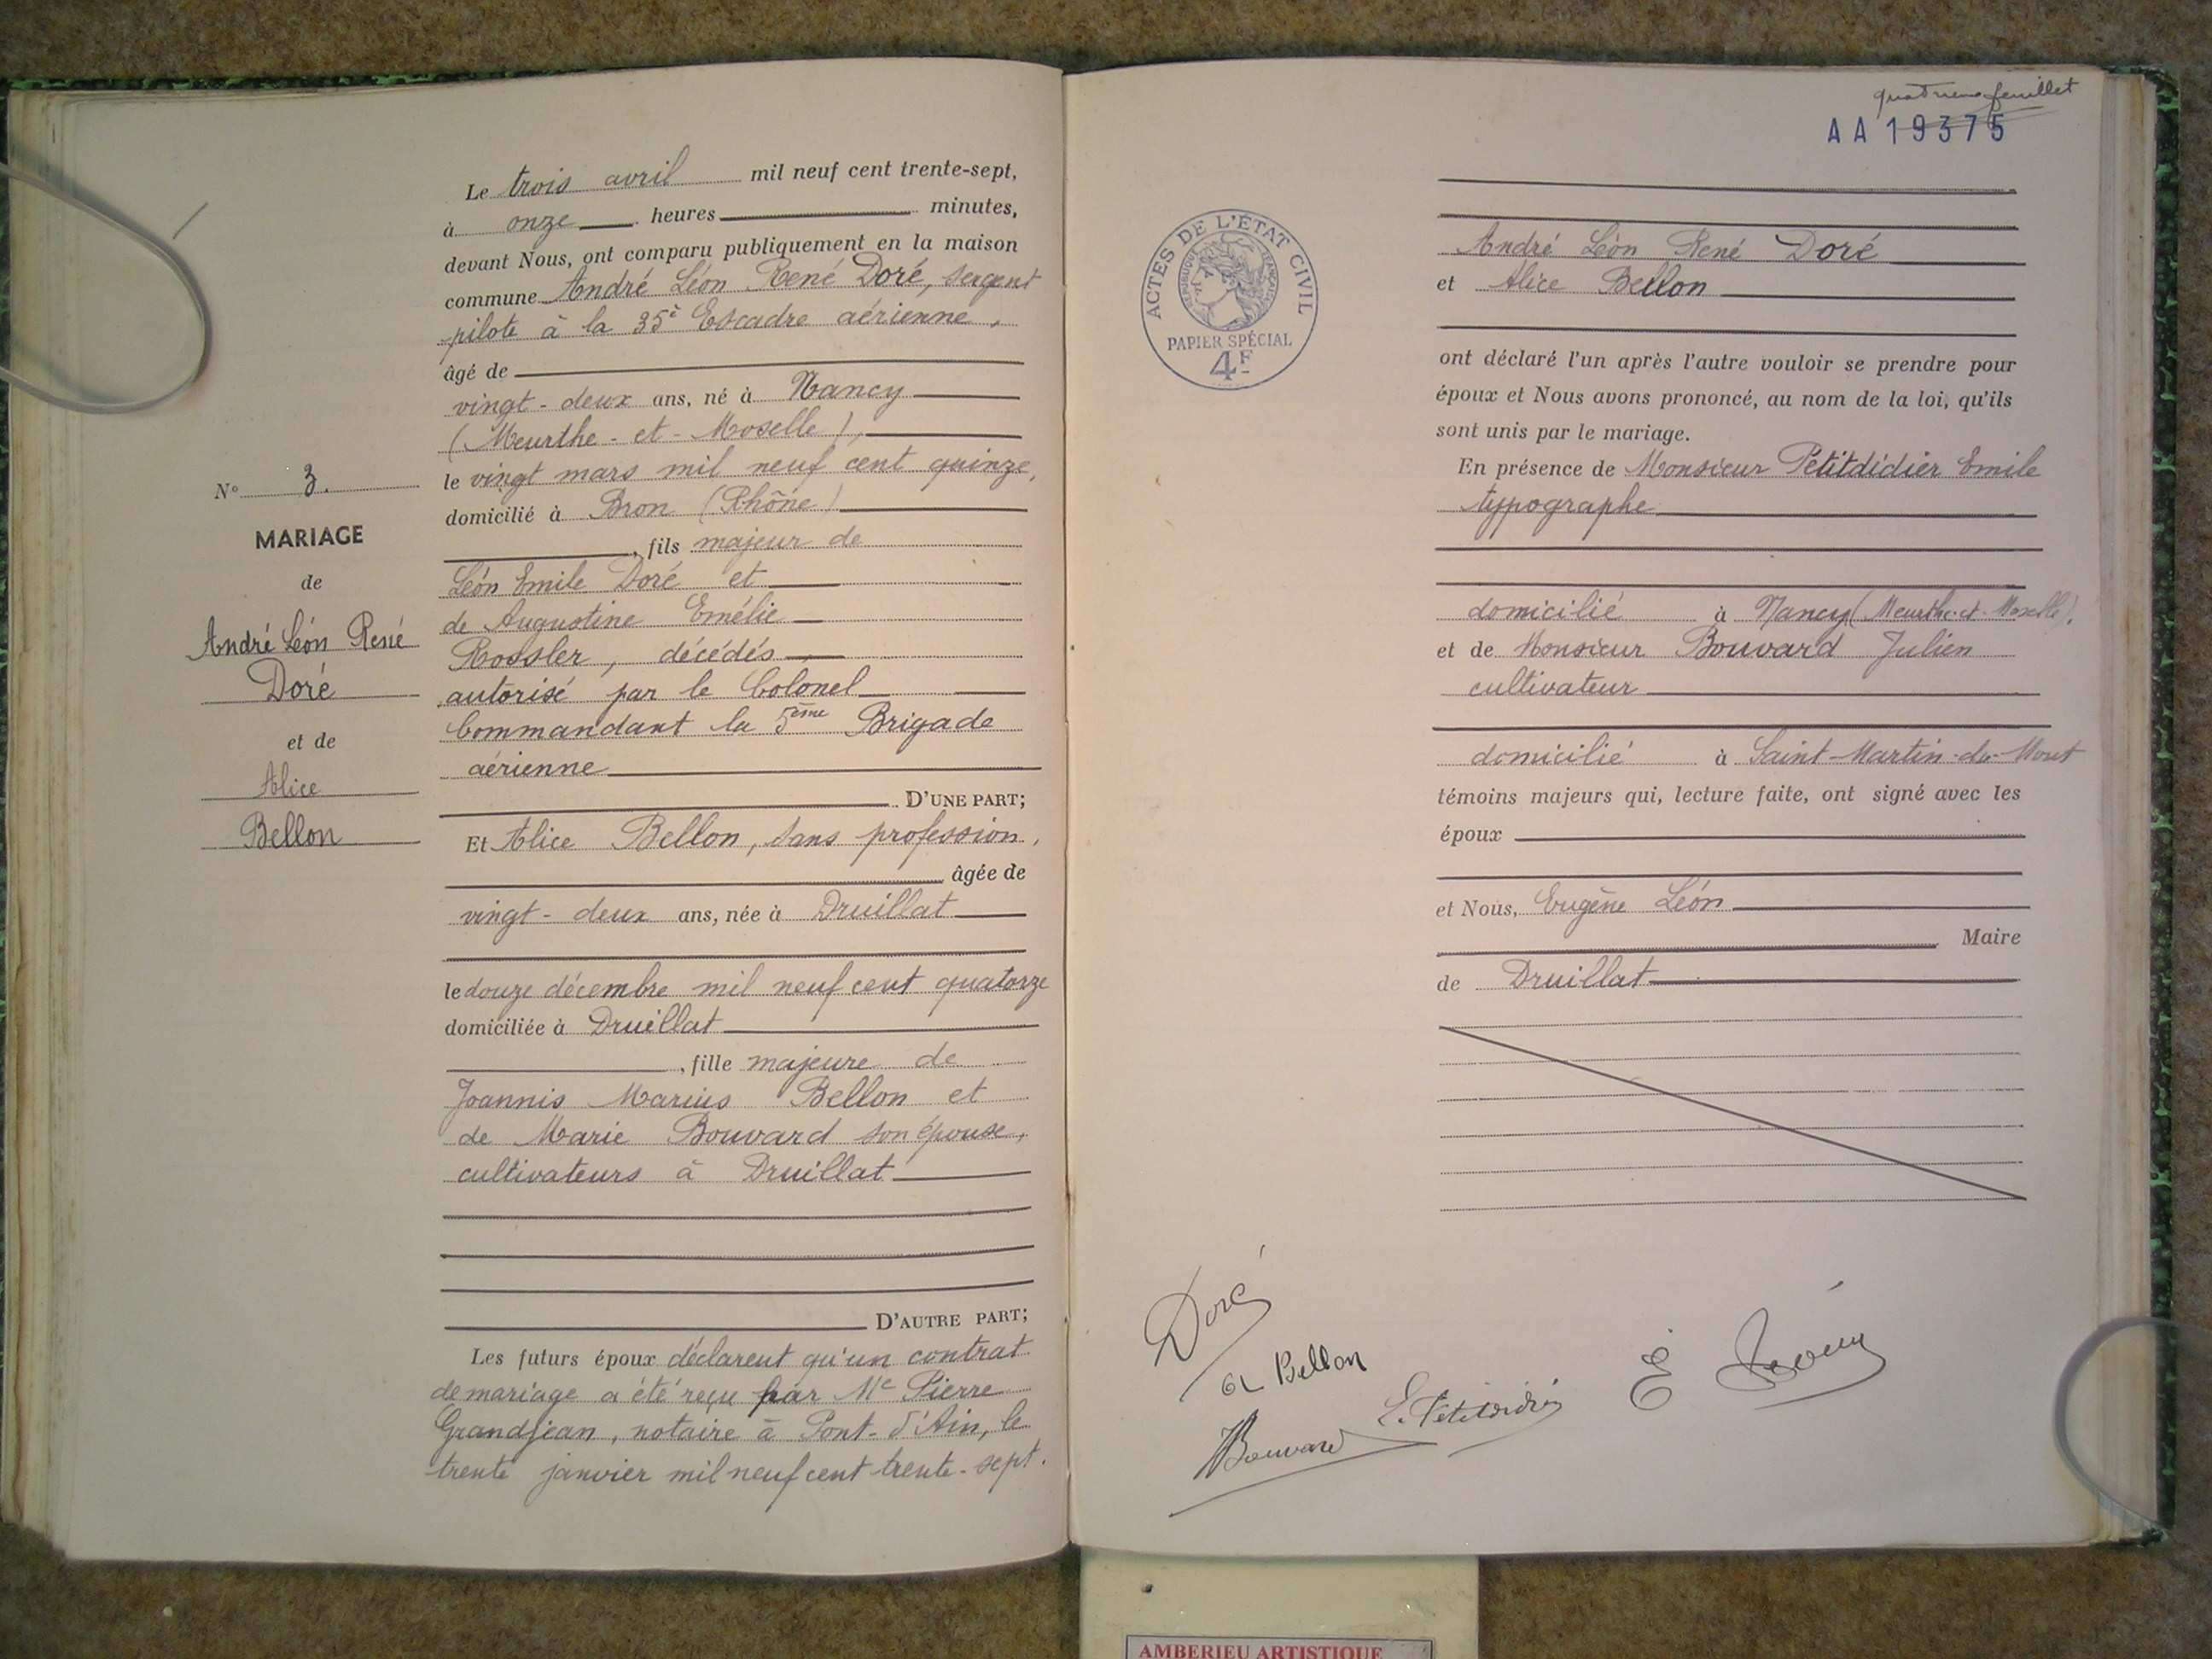 Le trois avril mil neuf cent trente-sept,
à onze heures minutes,
devant Nous, ont comparu publiquement en la maison
commune André Léon René Doré, sergent
pilote à la 35è Escadre aérienne,
âgé de
vingt-deux ans, né à Nancy
(Meurthe-et-Moselle),
le vingt mars mil neuf cent quinze,
domicilié à Bron (Rhône)
, fils majeur de
Léon Emile Doré et
de Augustine Emélie
Rossler, décédés,
autorisé par le Colonel
Commandant la 5ème Brigade
aérienne
D'UNE PART;
Et Alice Bellon, sans profession,
âgée de
vingt-deux ans, née à Druillat
le douze décembre mil neuf cent quatorze
domiciliée à Druillat
, fille majeure de
Joannis Marius Bellon et
de Marie Bouvard son épouse,
cultivateurs à Druillat
D'AUTRE PART;
Les futurs époux déclarent qu'un contrat
de mariage a été reçu par Me Pierre
Grandjean, notaire à Pont-d'Ain, le
trente janvier mil neuf cent trente-sept.
N° 3.
MARIAGE
de
André Léon René
Doré
et de
Alice
Bellon
quatrième feuillet
AA 19375
ACTES DE L'ÉTAT CIVIL
RÉPUBLIQUE FRANÇAISE
PAPIER SPÉCIAL
4F
André Léon René Doré
et Alice Bellon
ont déclaré l'un après l'autre vouloir se prendre pour
époux et Nous avons prononcé, au nom de la loi, qu'ils
sont unis par le mariage.
En présence de Monsieur Petitdidier Emile
typographe
domicilié à Nancy (Meurthe-et-Moselle),
et de Monsieur Bouvard Julien
cultivateur
domicilié à Saint-Martin-du-Mont
témoins majeurs qui, lecture faite, ont signé avec les
époux
et Nous, Eugène Léon
Maire
de Druillat
Doré
a Bellon
E. Petitdidier
E Léon
Bouvard
AMBERIEU ARTISTIQUE